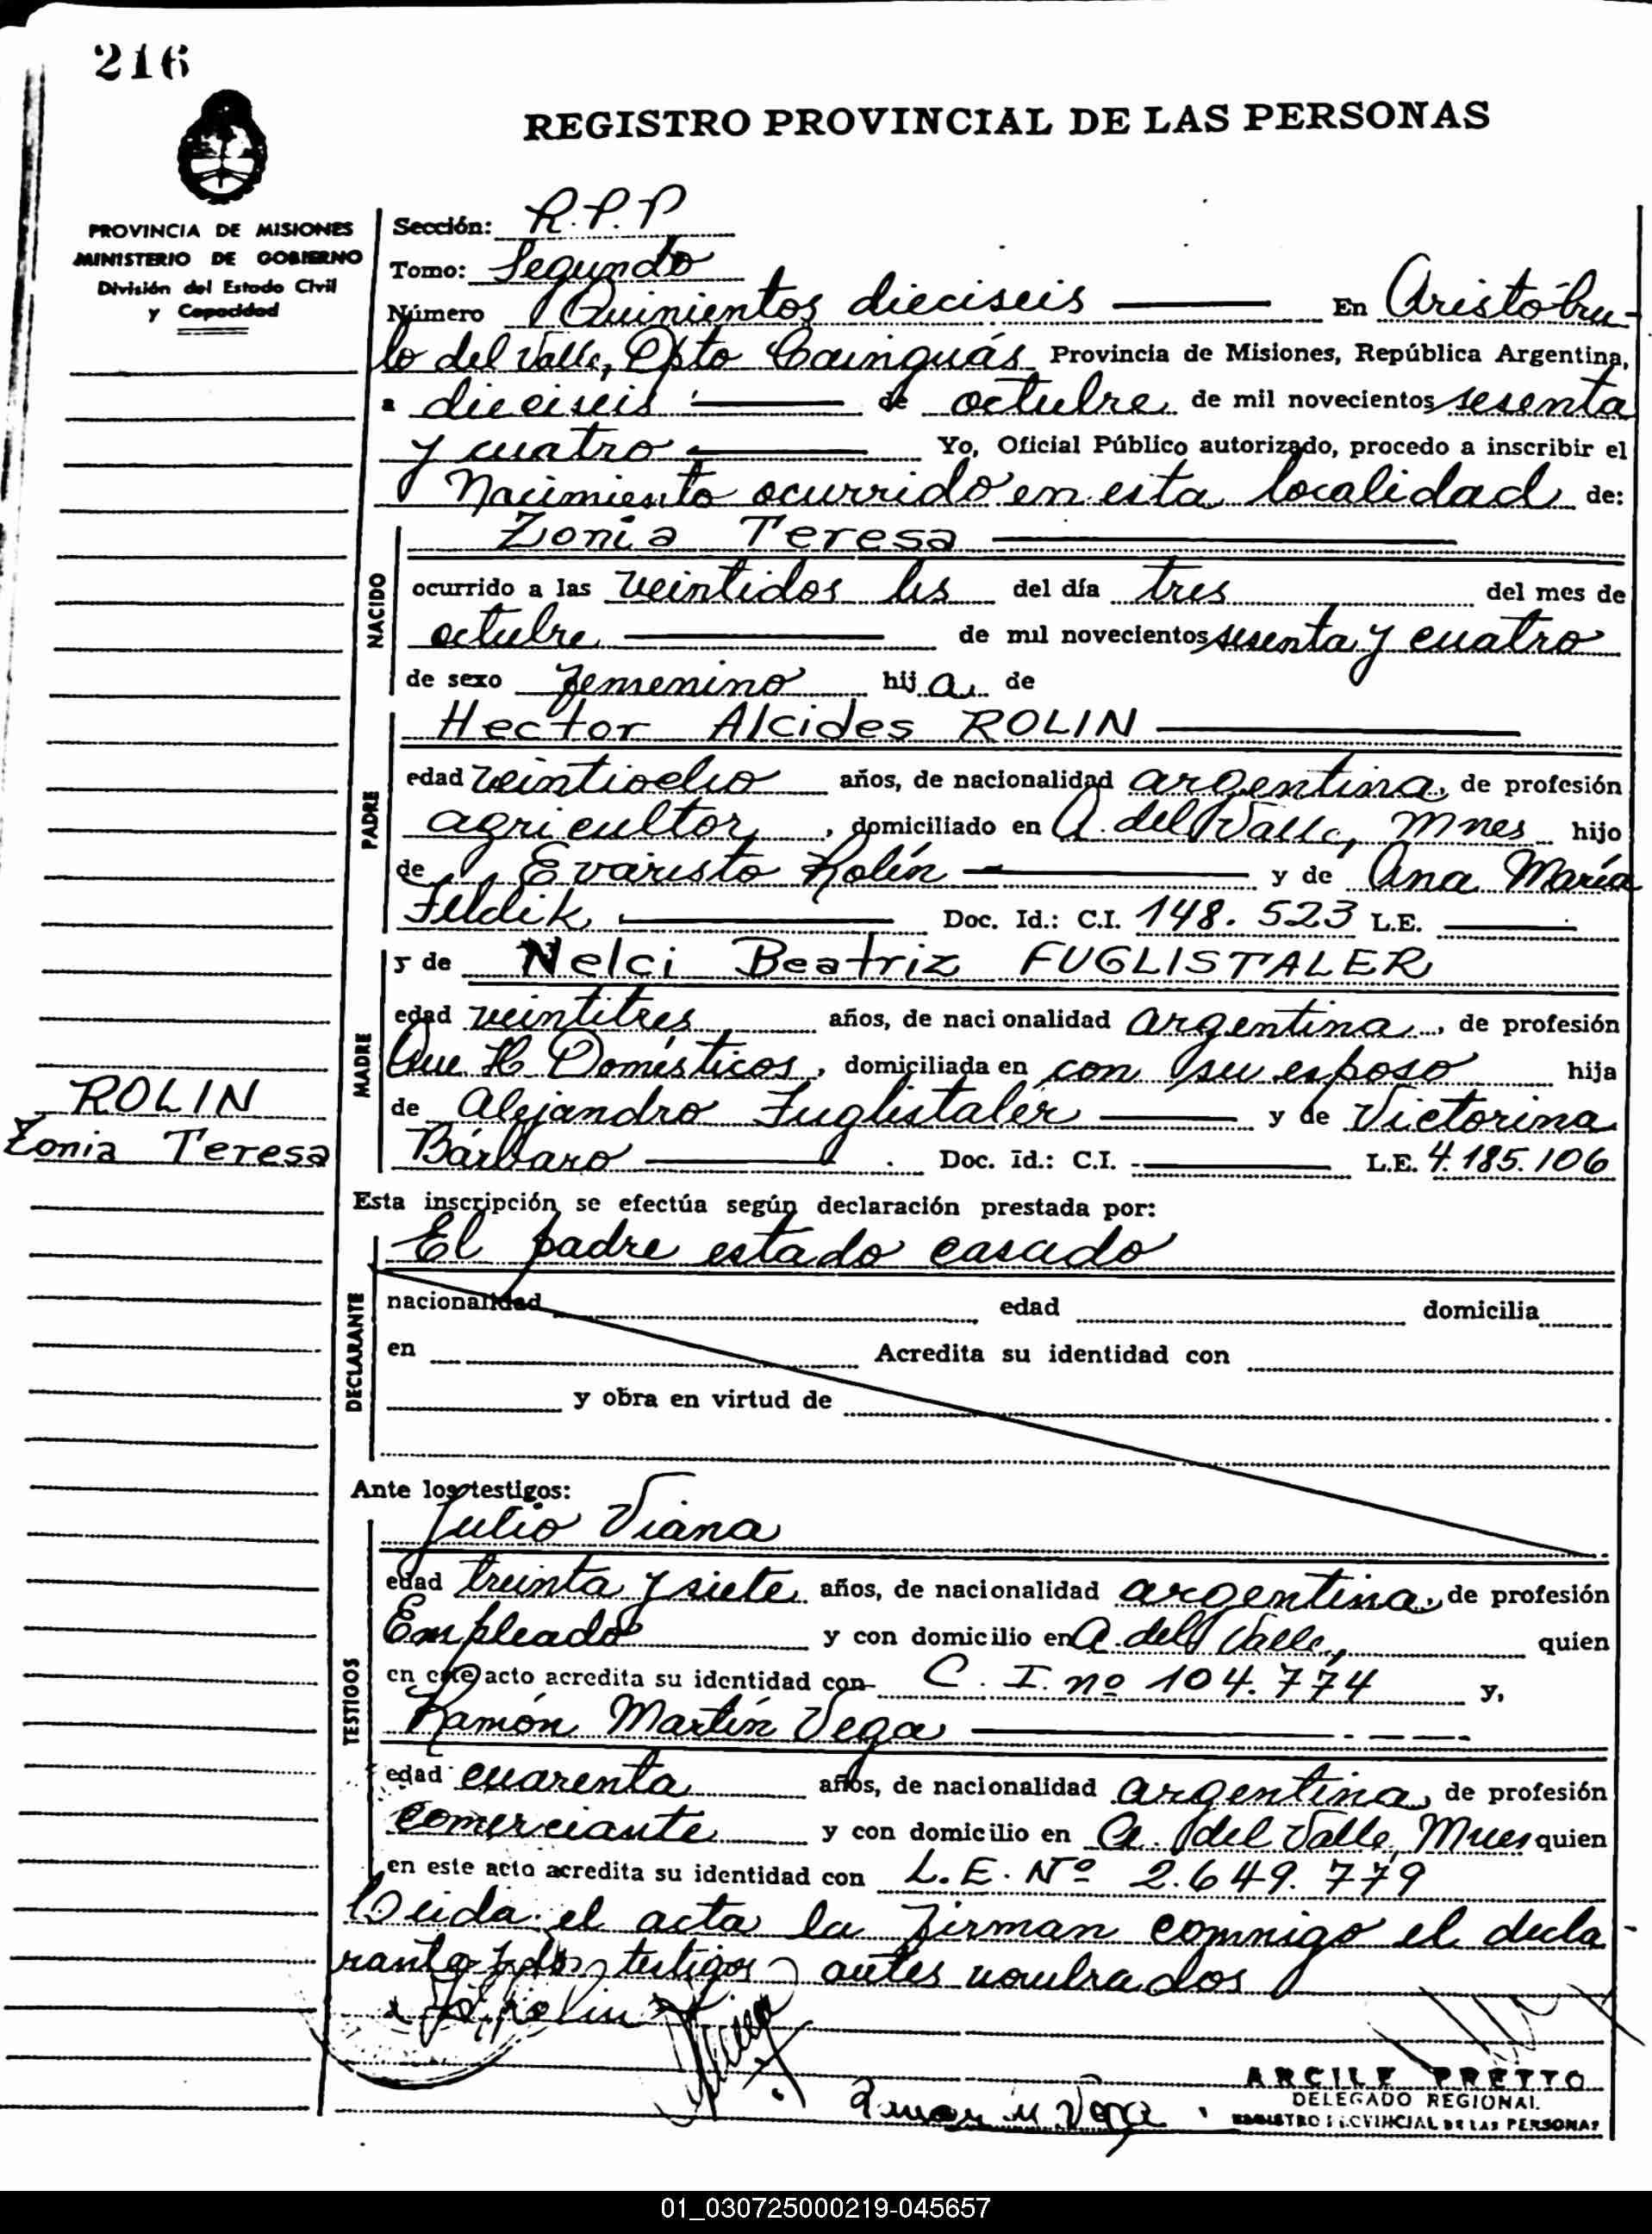 216
REGISTRO PROVINCIAL DE LAS PERSONAS
PROVINCIA DE MISIONES
MINISTERIO DE GOBIERNO
División del Estado Civil
y Capacidad
Sección: R.P.P
Tomo: Segundo
Número Quinientos dieciseis En Aristóbu-
lo del Valle, Dpto Cainguás Provincia de Misiones, República Argentina,
a dieciseis de octubre de mil novecientos sesenta
y cuatro Yo, Oficial Público autorizado, procedo a inscribir el
Nacimiento ocurrido en esta localidad de:
NACIDO
Zonia Teresa
ocurrido a las veintidos hs del día tres del mes de
octubre de mil novecientos sesenta y cuatro
de sexo femenino hija de
PADRE
Hector Alcides ROLIN
edad veintiocho años, de nacionalidad argentina, de profesión
agricultor, domiciliado en A. del Valle, Mnes hijo
de Evaristo Rolín y de Ana María
Feldik Doc. Id.: C.I. 148.523 L.E.
MADRE
y de Nelci Beatriz FUGLISTALER
edad veintitres años, de nacionalidad argentina, de profesión
Que H. Domésticos, domiciliada en con su esposo hija
de Alejandro Fuglistaler y de Victorina
Bárbaro Doc. Id.: C.I. L.E. 4.185.106
ROLIN
Zonia Teresa
Esta inscripción se efectúa según declaración prestada por:
DECLARANTE
El padre estado casado
nacionalidad edad domicilia
en Acredita su identidad con
y obra en virtud de
Ante los testigos:
TESTIGOS
Julio Viana
edad treinta y siete años, de nacionalidad argentina, de profesión
Empleado y con domicilio en A. del Valle, quien
en este acto acredita su identidad con C.I. nº 104.774 y,
Ramón Martín Vega
edad cuarenta años, de nacionalidad argentina, de profesión
comerciante y con domicilio en A. del Valle, Mnes quien
en este acto acredita su identidad con L.E. Nº 2.649.779
Leida el acta la firman conmigo el decla-
rante y los testigos antes nombrados
Ramon M Vega
ARCILE PRETTO
DELEGADO REGIONAL
REGISTRO PROVINCIAL DE LAS PERSONAS
01_030725000219-045657